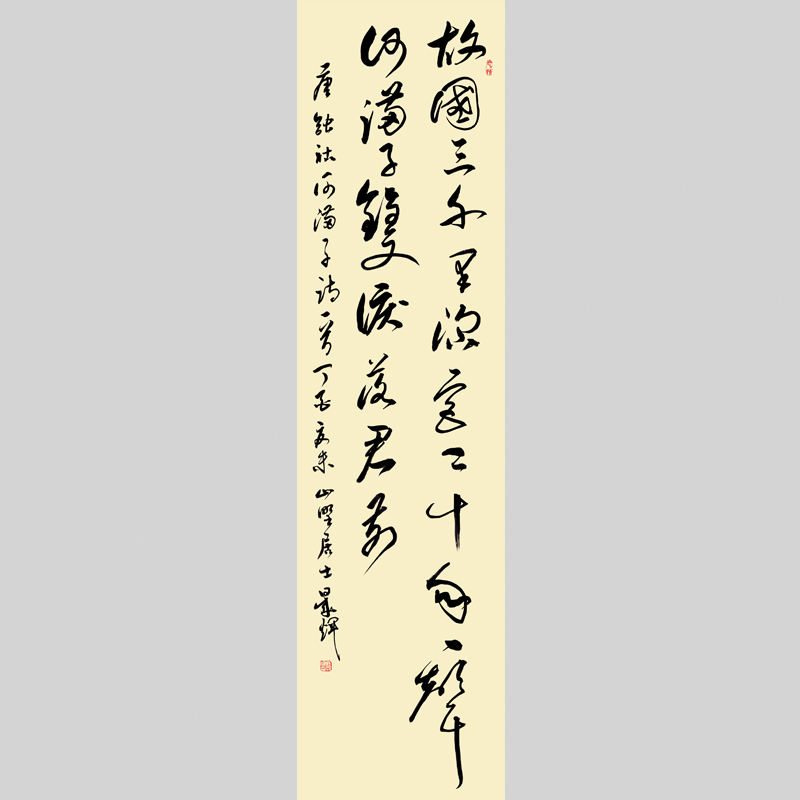 故國三千里深宮二十年一聲
何滿子雙淚落君前
唐張祜何滿子詩一首丁丑夏末山野居士晨輝